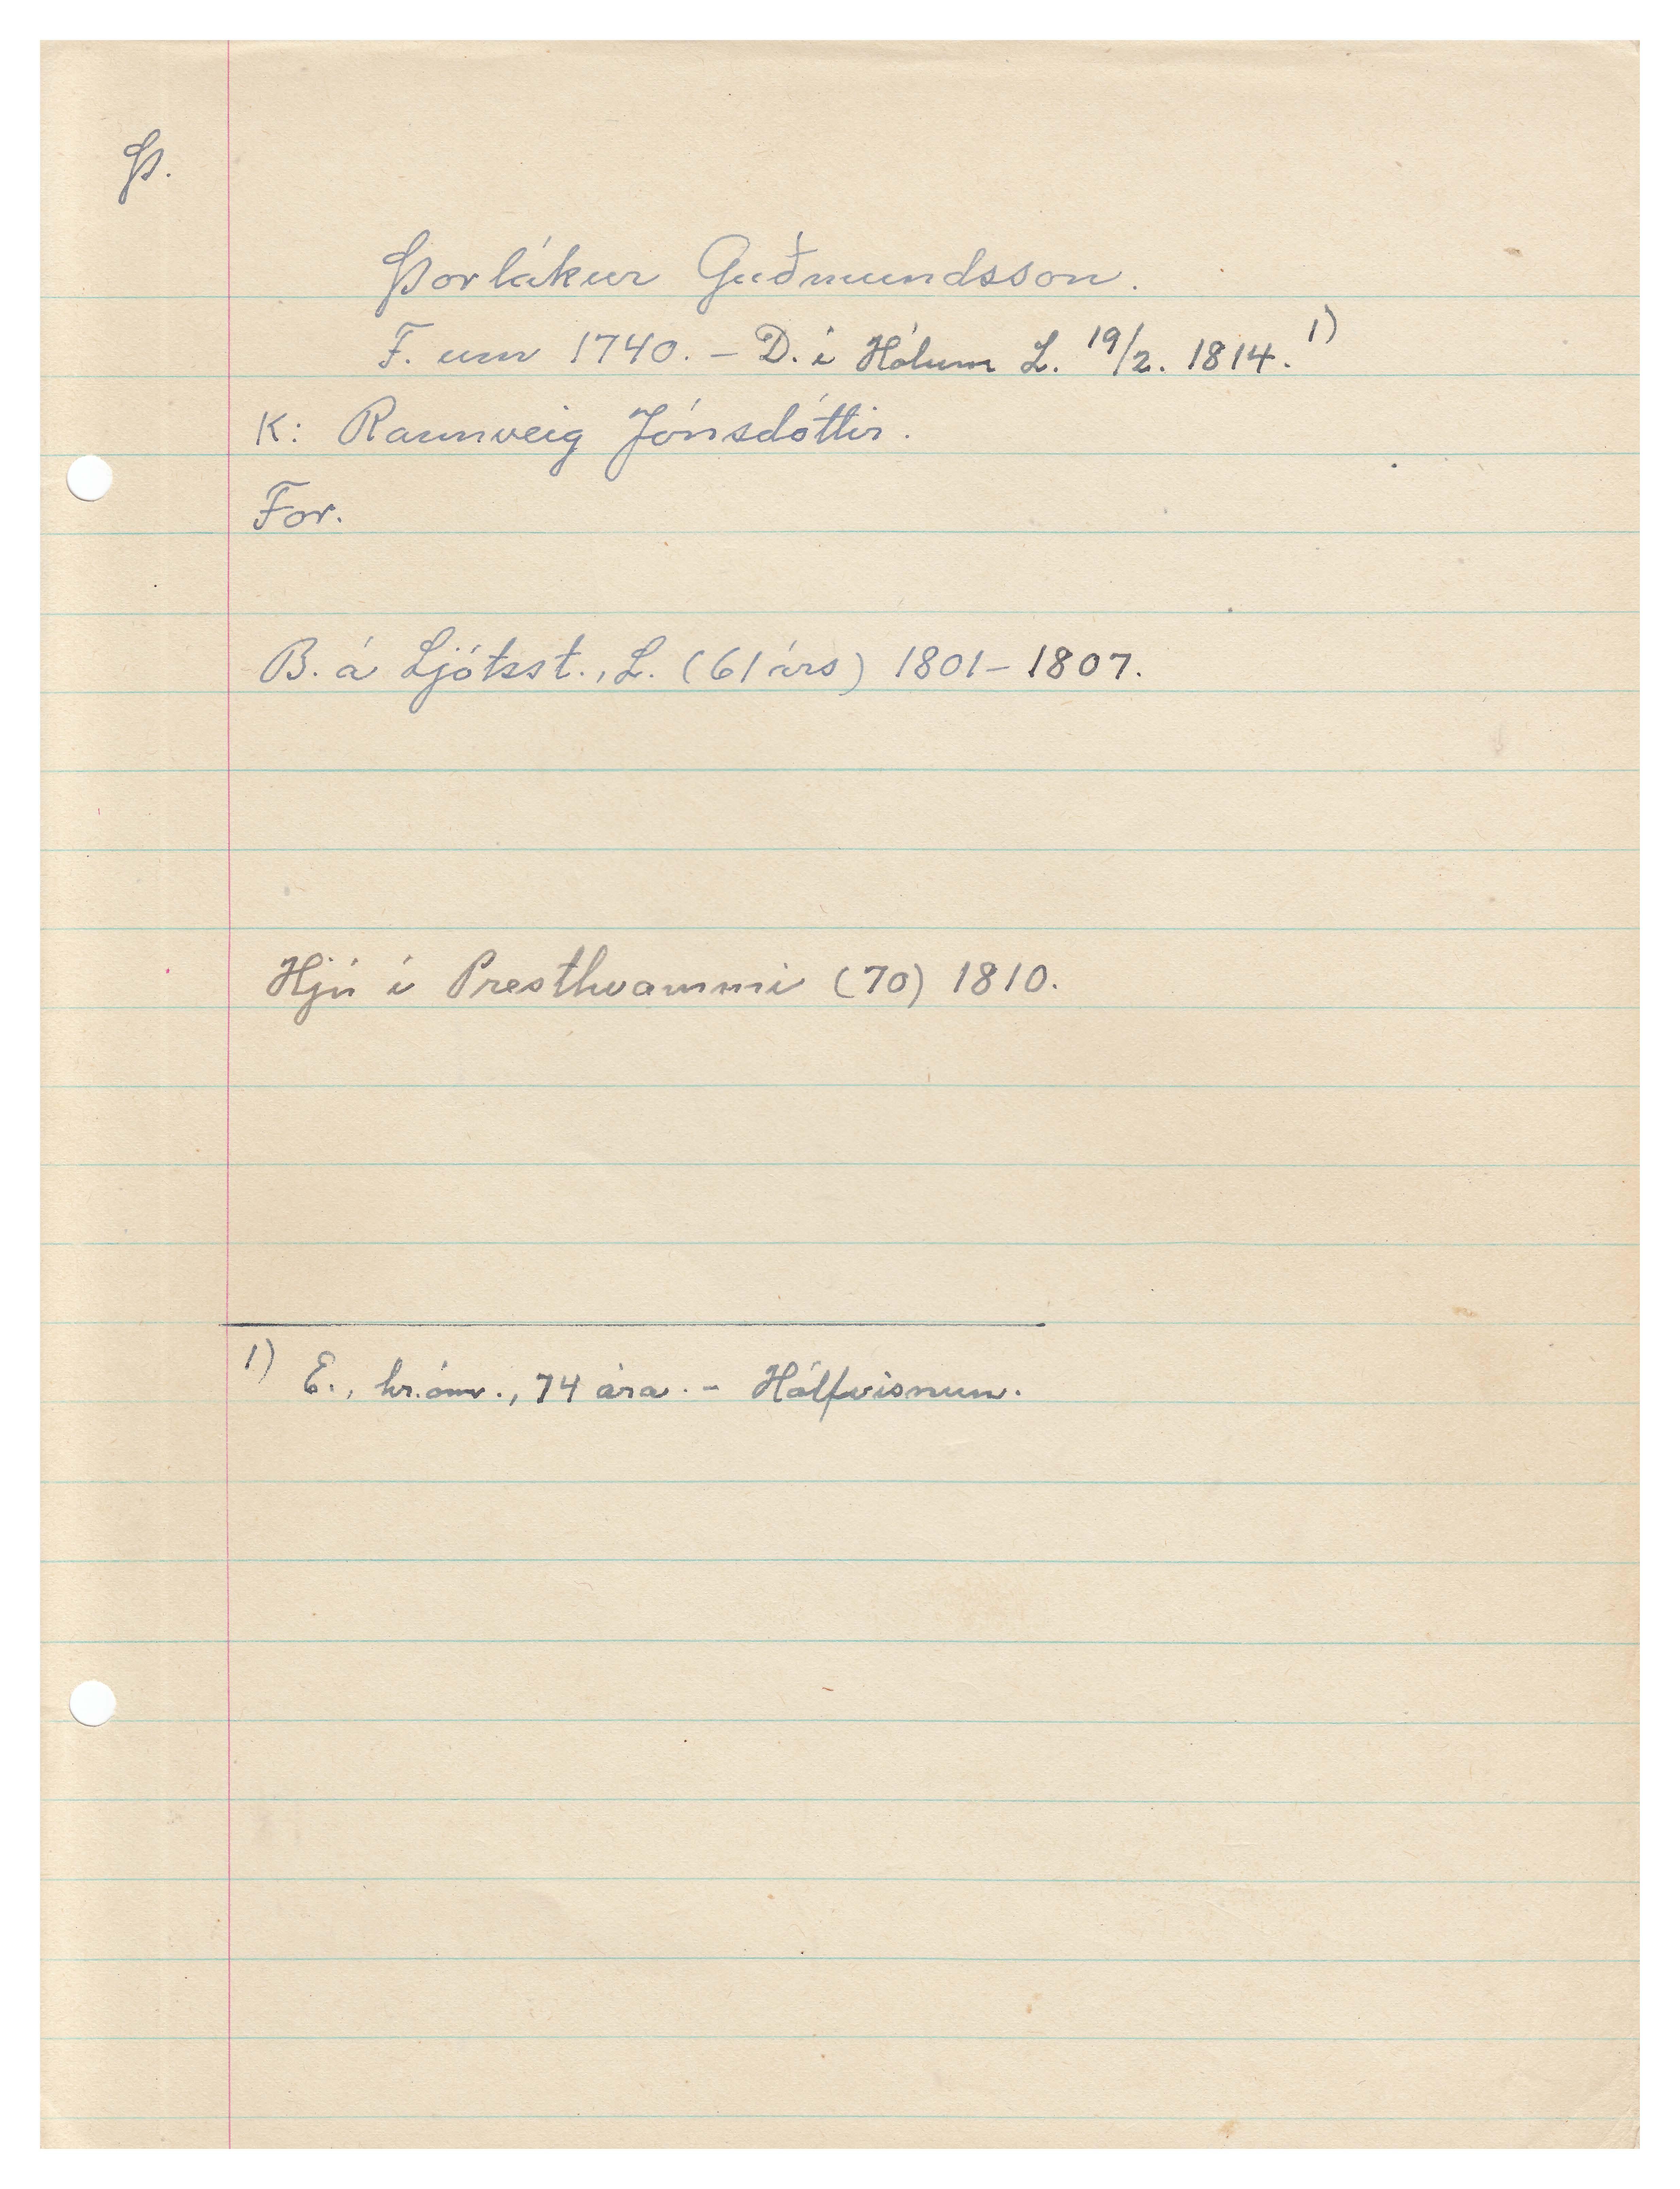 Þ.
Þorlákur Guðmundsson.
F. um 1740. – D. í Hólum L. 19/2. 1814. 1)
K: Rannveig Jónsdóttir.
For.
B. á Ljótsst., L. (61 árs) 1801–1807.
Hjú í Presthvammi (70) 1810.
1) E., hr.ómr., 74 ára. – Hálfvisnun.